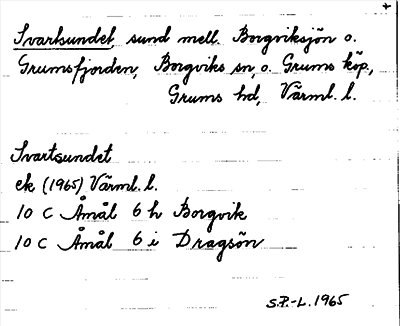 Svartsundet, sund mell. Borgviksjön o.
Grumsfjorden, Borgviks sn, o. Grums köp.,
Grums hd, Värml. l.
Svartsundet
ek (1965) Värml. l.
10 C Åmål 6 h Borgvik
10 C Åmål 6 i Dragsön
S.P.-L. 1965